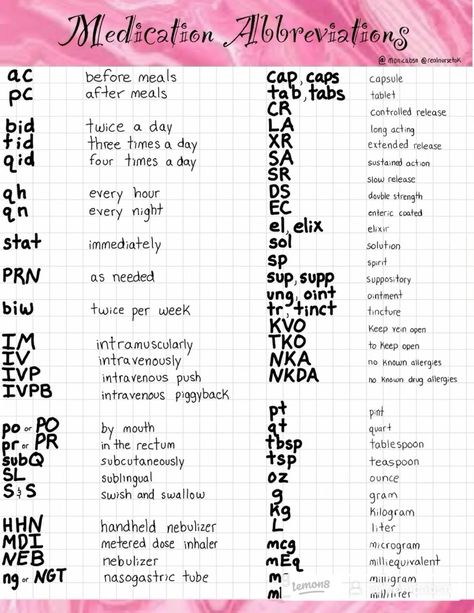 Medication Abbreviations
@monicabsn @realnursetok
ac before meals
pc after meals
bid twice a day
tid three times a day
qid four times a day
qh every hour
qn every night
stat immediately
PRN as needed
biw twice per week
IM intramuscularly
IV intravenously
IVP intravenous push
IVPB intravenous piggyback
po or PO by mouth
pr or PR in the rectum
subQ subcutaneously
SL sublingual
S&S swish and swallow
HHN handheld nebulizer
MDI metered dose inhaler
NEB nebulizer
ng or NGT nasogastric tube
cap, caps capsule
tab, tabs tablet
CR controlled release
LA long acting
XR extended release
SA sustained action
SR slow release
DS double strength
EC enteric coated
el, elix elixir
sol solution
sp spirit
sup, supp suppository
ung, oint ointment
tr, tinct tincture
KVO keep vein open
TKO to keep open
NKA no known allergies
NKDA no known drug allergies
pt pint
qt quart
tbsp tablespoon
tsp teaspoon
oz ounce
g gram
kg kilogram
L liter
mcg microgram
mEq milliequivalent
milligram
ml milliliter
lemon8